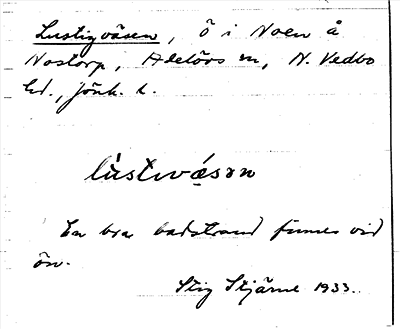 Lustigvåsen, ö i Noen å
Nostorp, Adelövs sn, N. Vedbo
hd., Jönk. l.
lùstɩvǻsən
En bra badstrand finnes vid
ön.
Stig Stjärne 1933.